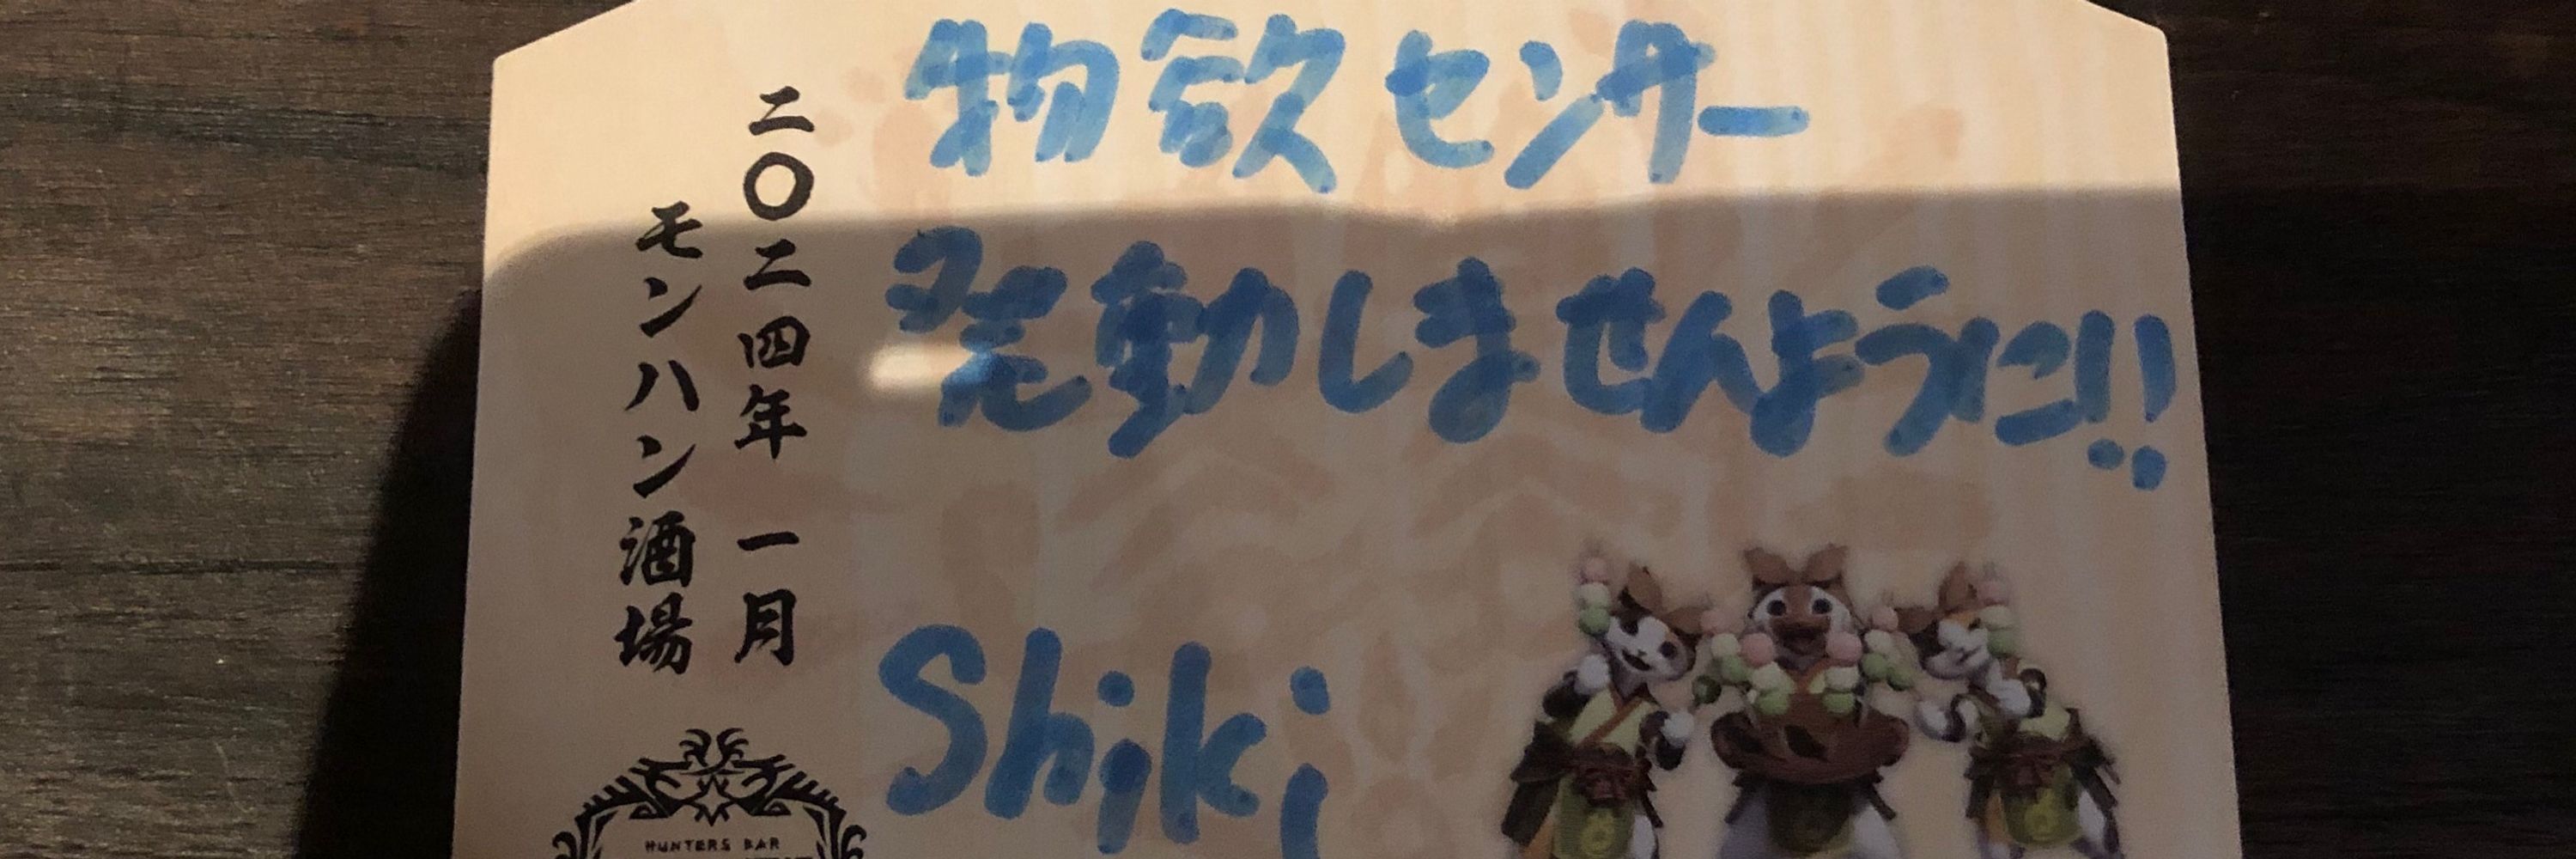 物欲センサー
発動しませんように!!
Shiki
二〇二四年 一月
モンハン酒場
HUNTERS BAR